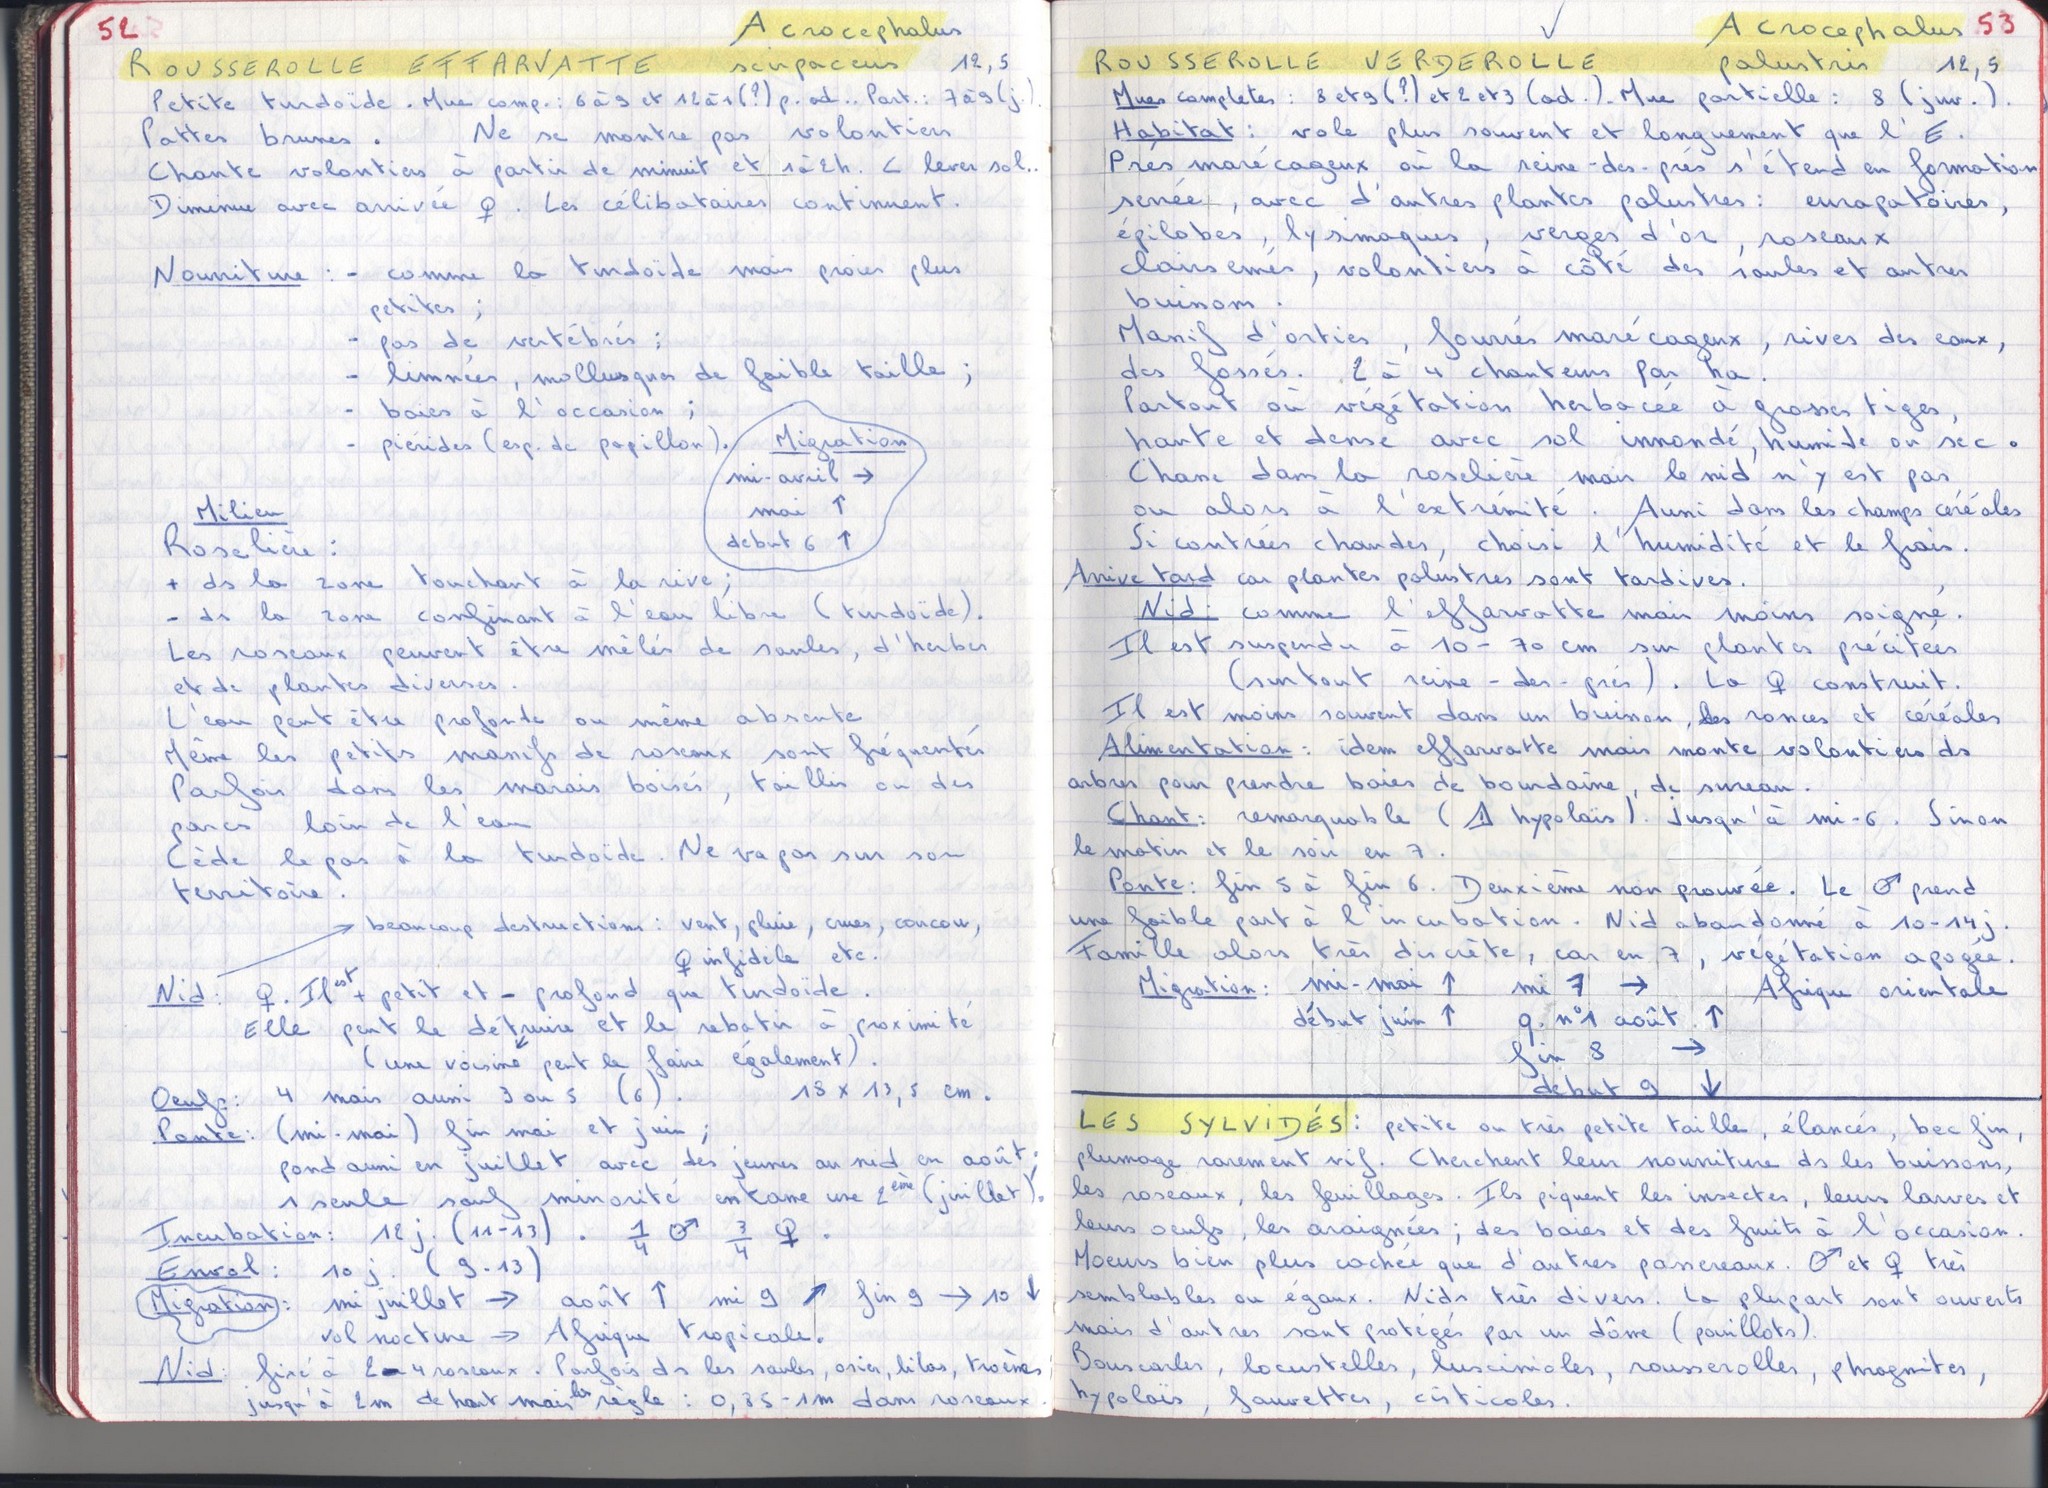 52
Acrocephalus
ROUSSEROLLE EFFARVATTE scirpaceus 12,5
Petite turdoïde. Mue comp.: 6 à 9 et 12 à 1 (?) p. ad.. Part.: 7 à 9 (j.).
Pattes brunes. Ne se montre pas volontiers
Chante volontiers à partir de minuit et 1 à 2h. < lever sol..
Diminue avec arrivée ♀. Les célibataires continuent.
Nourriture : - comme la turdoïde mais proies plus
petites ;
- pas de vertébrés ;
- limnées, mollusques de faible taille ;
- baies à l'occasion ;
- piérides (esp. de papillon).
Migration
mi-avril →
mai ↑
début 6 ↑
Milieu
Roselière :
+ ds la zone touchant à la rive ;
- ds la zone confinant à l'eau libre (turdoïde).
Les roseaux peuvent être mêlés de saules, d'herbes
et de plantes diverses.
L'eau peut être profonde ou même absente
Même les petits massifs de roseaux sont fréquentés
Parfois dans les marais boisés, taillis ou des
parcs loin de l'eau
Cède le pas à la turdoïde. Ne va pas sur son
territoire.
→ beaucoup destructions : vent, pluie, crues, coucou,
♀ infidèle etc.
Nid : ♀. Il est + petit et - profond que turdoïde.
Elle peut le détruire et le rebatir à proximité
(une voisine peut le faire également).
Oeufs : 4 mais aussi 3 ou 5 (6). 18 x 13,5 cm.
Ponte : (mi-mai) fin mai et juin ;
pond aussi en juillet avec des jeunes au nid en août.
1 seule sauf minorité entame une 2ème (juillet).
Incubation : 12 j. (11-13). 1/4 ♂ 3/4 ♀.
Envol : 10 j. (9-13)
Migration : mi juillet → août ↑ mi 9 ↗ fin 9 → 10 ↓
vol nocturne → Afrique tropicale.
Nid : fixé à 2-4 roseaux. Parfois ds les saules, osier, lilas, troènes
jusqu'à 2m de haut mais les règle : 0,35-1m dans roseaux.
✓
Acrocephalus 53
ROUSSEROLLE VERDEROLLE palustris 12,5
Mues complètes : 8 et 9 (?) et 2 et 3 (ad.). Mue partielle : 8 (juv.).
Habitat : vole plus souvent et longuement que l'E.
Près marécageux où la reine-des-prés s'étend en formation
serrée, avec d'autres plantes palustres : eurapatoires,
épilobes, lysimaques, verges d'or, roseaux
clairsemés, volontiers à côté des saules et autres
buissons.
Massif d'orties, fourrés marécageux, rives des eaux,
des fossés. 2 à 4 chanteurs par ha.
Partout où végétation herbacée à grosses tiges,
haute et dense avec sol innondé, humide ou sec.
Chasse dans la roselière mais le nid n'y est pas
ou alors à l'extrémité. Aussi dans les champs céréales
Si contrées chaudes, choisi l'humidité et le frais.
Arrive tard car plantes palustres sont tardives.
Nid : comme l'effarvatte mais moins soigné.
Il est suspendu à 10-70 cm sur plantes précitées
(surtout reine-des-prés). La ♀ construit.
Il est moins souvent dans un buisson, les ronces et céréales
Alimentation : idem effarvatte mais monte volontiers ds
arbres pour prendre baies de bourdaine, de sureau.
Chant : remarquable (⚠ hypolaïs). Jusqu'à mi-6. Sinon
le matin et le soir en 7.
Ponte : fin 5 à fin 6. Deuxième non prouvée. Le ♂ prend
une faible part à l'incubation. Nid abandonné à 10-14 j.
Famille alors très discrète, car en 7, végétation apogée.
Migration : mi-mai ↑ mi 7 → Afrique orientale
début juin ↑ q. n°1 août ↑
fin 8 →
début 9 ↓
LES SYLVIDÉS : petite ou très petite taille, élancés, bec fin,
plumage rarement vif. Cherchent leur nourriture ds les buissons,
les roseaux, les feuillages. Ils piquent les insectes, leurs larves et
leurs oeufs, les araignées ; des baies et des fruits à l'occasion.
Moeurs bien plus cachée que d'autres passereaux. ♂ et ♀ très
semblables ou égaux. Nids très divers. La plupart sont ouverts
mais d'autres sont protégés par un dôme (pouillots).
Bouscarles, locustelles, luscinioles, rousserolles, phragmites,
hypolaïs, fauvettes, cisticoles.